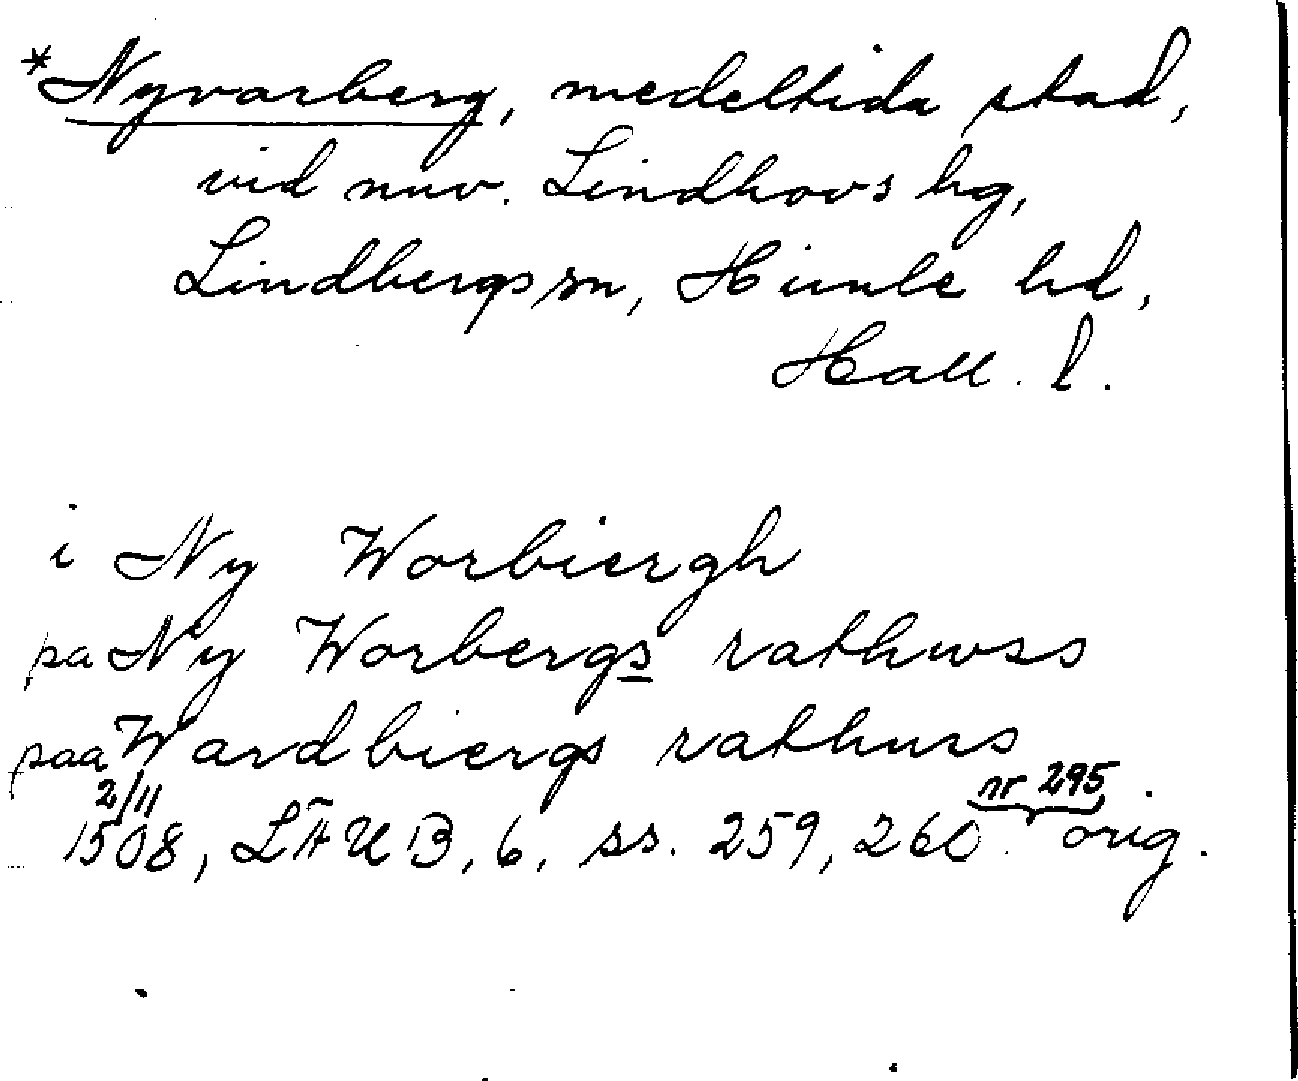 *Nyvarberg, medeltida stad,
vid nuv. Lindhovs hg,
Lindbergs sn, Himle hd,
Hall. l.
i Ny Worbiergh
pa Ny Worbergs rathwss
paa Wardbiergs rathuss
2/11 nr 295
1508, LÄUB, 6, ss. 259, 260. orig.